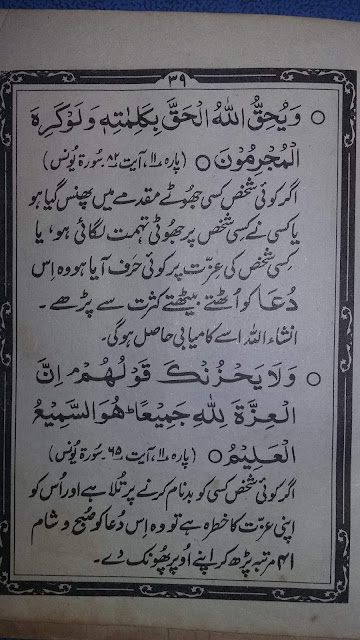 ۳۹
○ وَيُحِقُّ اللهُ الْحَقَّ بِكَلِمٰتِهٖ وَلَوْ كَرِهَ
الْمُجْرِمُوْنَ ○ (پارہ ۱۱، آیت ۸۲، سُورۃ یُونس)
اگر کوئی شخص کسی جھوٹے مقدمے میں پھنس گیا ہو
یا کسی نے کسی شخص پر جھوٹی تہمت لگائی ہو، یا
کسی شخص کی عزّت پر کوئی حَرف آیا ہو وہ اِس
دُعا کو اُٹھتے بیٹھتے کثرت سے پڑھے ۔
انشاء اللہ اسے کامیابی حاصل ہوگی۔
○ وَلَا يَحْزُنْكَ قَوْلُهُمْ اِنَّ
الْعِزَّةَ لِلّٰهِ جَمِيْعًا ؕ هُوَ السَّمِيْعُ
الْعَلِيْمُ ○ (پارہ ۱۱، آیت ۶۵، سُورۃ یُونس)
اگر کوئی شخص کسی کو بدنام کرنے پر تُلا ہے اور اُس کو
اپنی عزّت کا خطرہ ہے تو وہ اِس دُعا کو صُبح و شام
۴۱ مرتبہ پڑھ کر اپنے اُوپر پھُونک دے۔